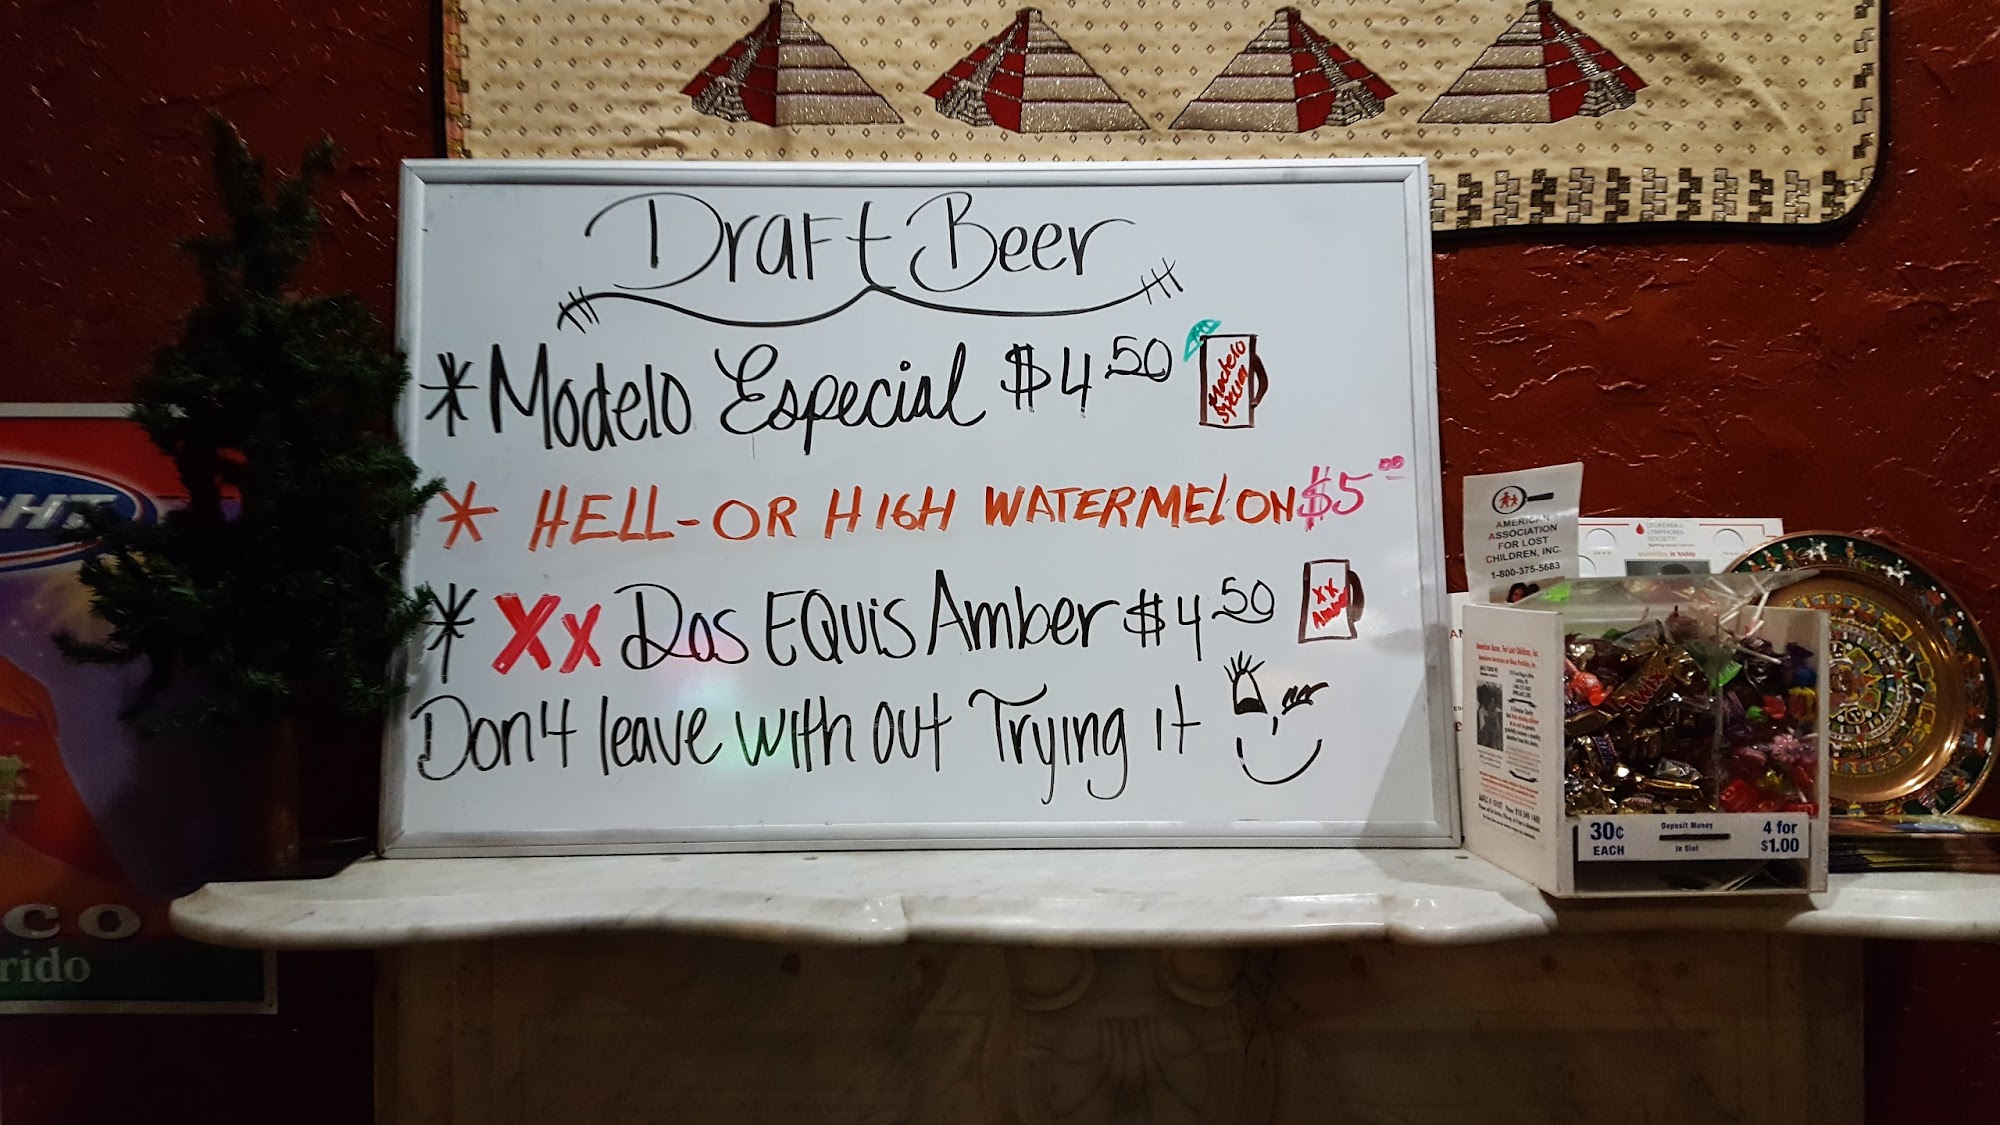 Draft Beer
* Modelo Especial $4.50
Modelo
* HELL-OR HIGH WATERMELON $5.00
* XX Dos EQUis Amber $4.50
XX
Amber
Don't leave with out Trying it
GHT
CO
rido
AMERICAN
ASSOCIATION
FOR LOST
CHILDREN, INC.
1-800-375-5683
LEUKEMIA &
LYMPHOMA
SOCIETY
someday is today
American Assoc. For Lost Children, Inc.
30¢
EACH
Deposit Money
in Slot
4 for
$1.00
Twix